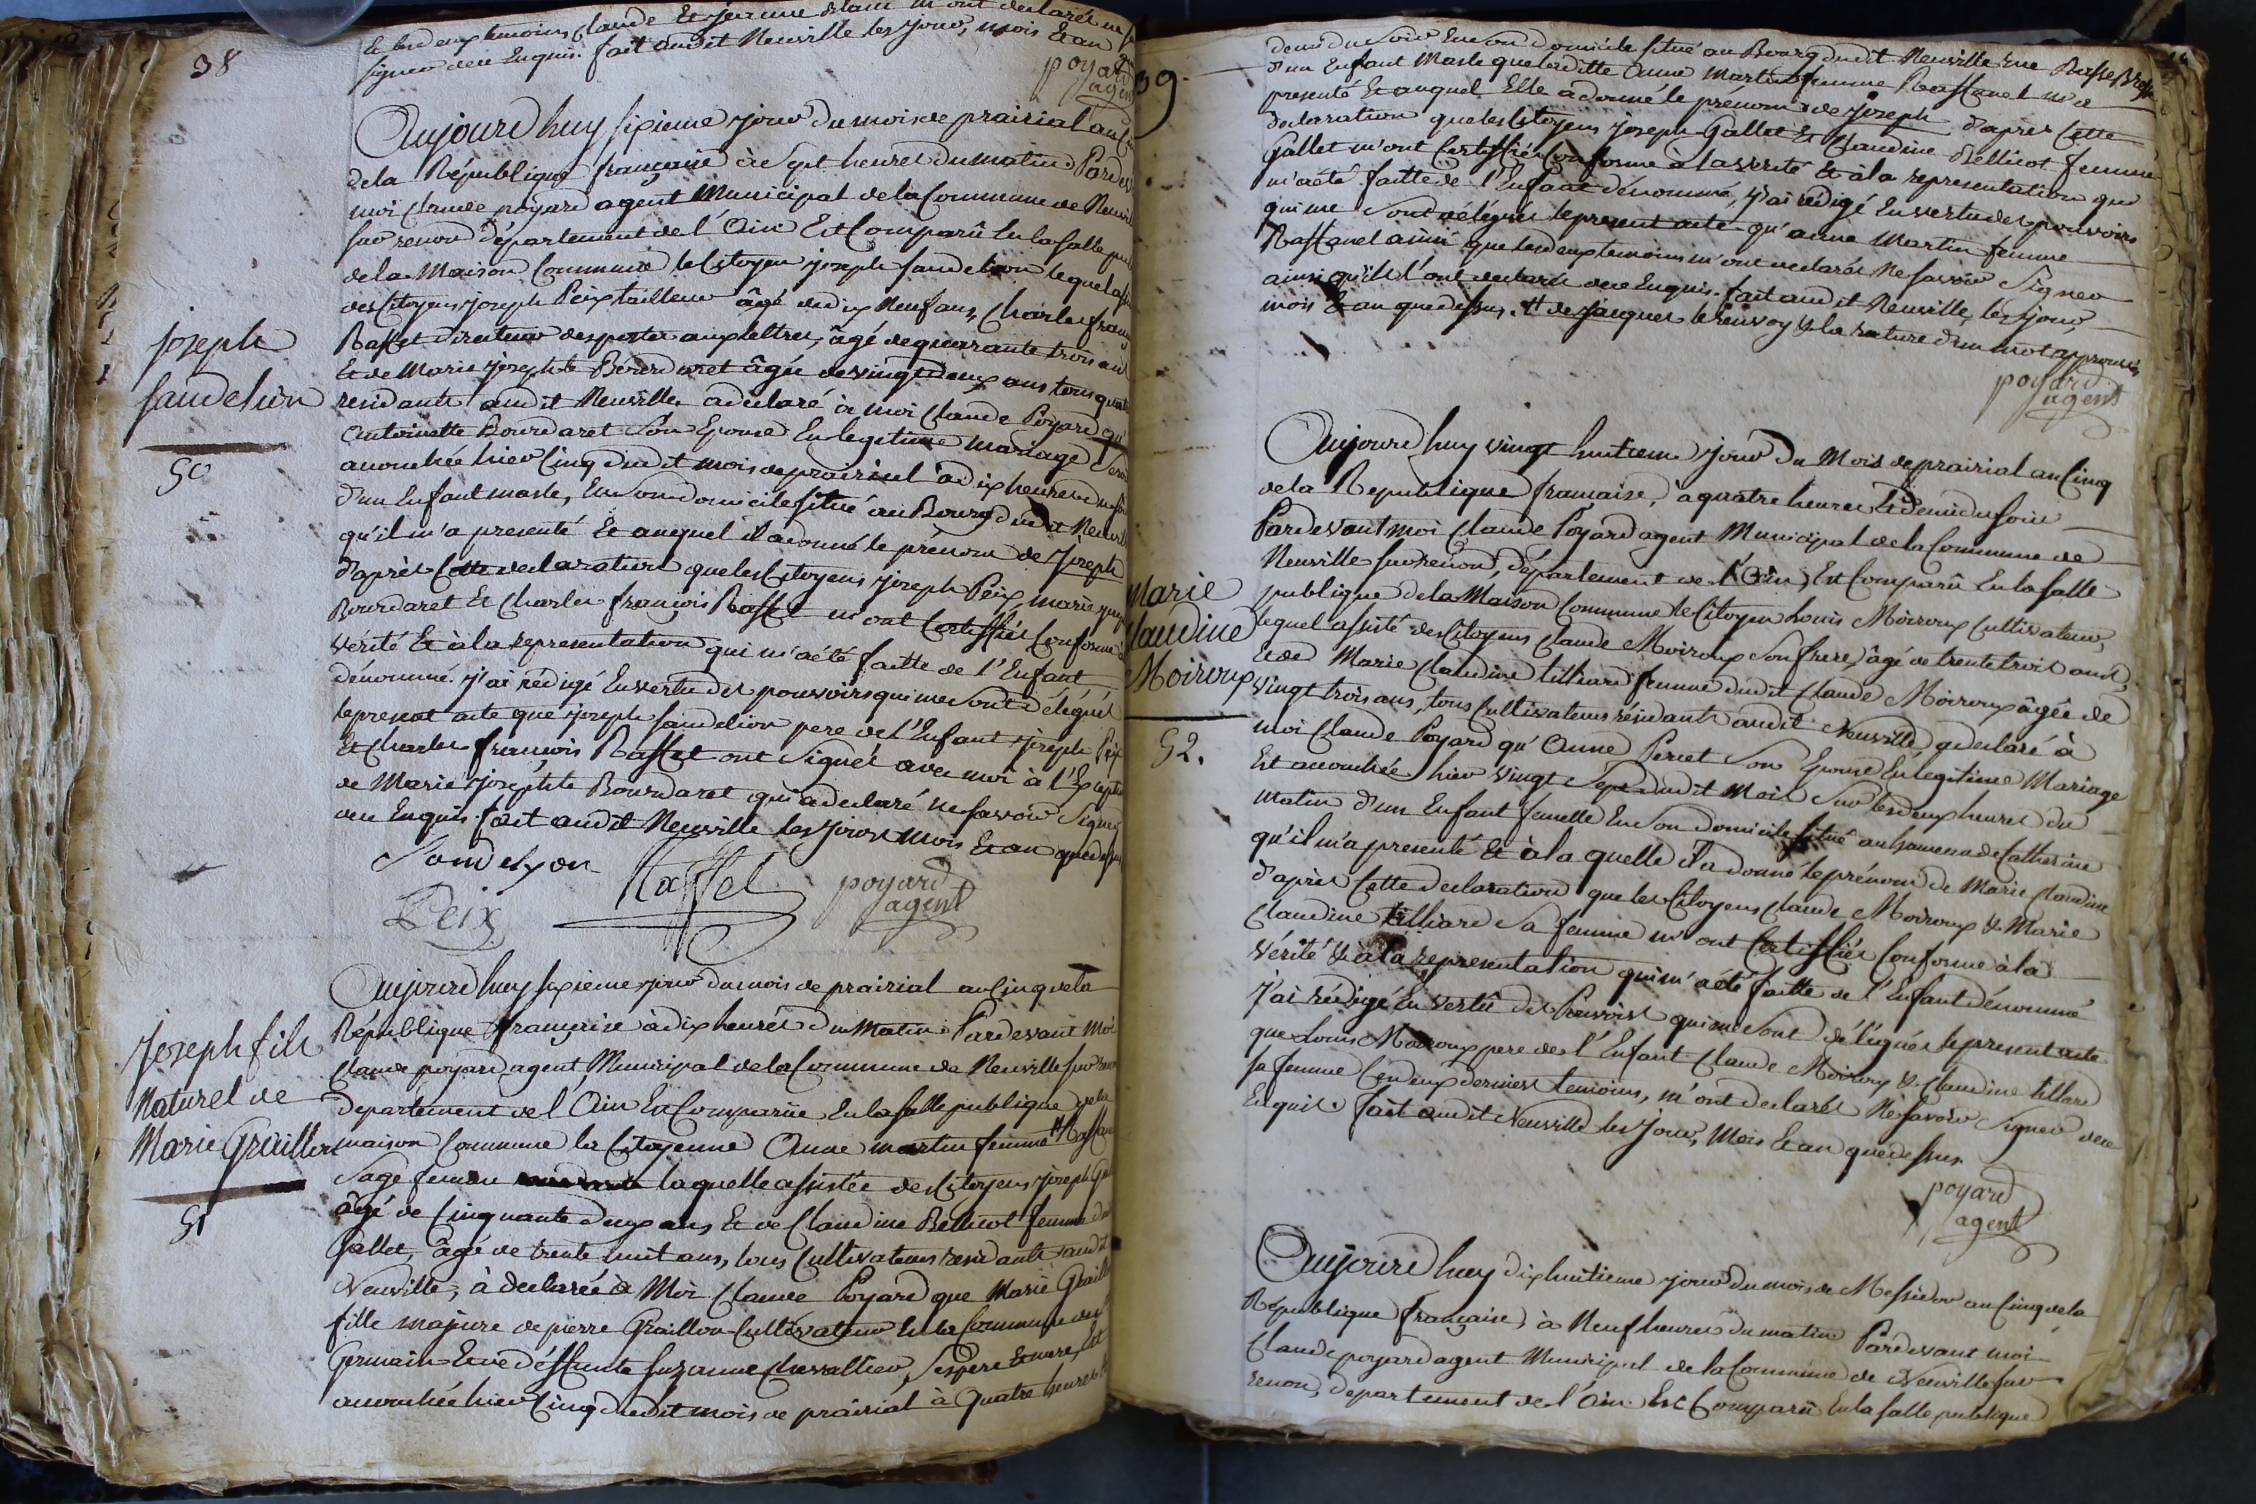 38
les deux temoins Claude et jeanne Blanc m'ont declarés ne
signer de ce Enquis. fait audit Neuville les jour, mois et an
poyard
agent
Aujourd'huy sixieme jour du mois de prairial an
de la République française à sept heures du matin Par
moi Claude poyard agent Municipal de la Commune de Neuvil
sur renon département de l'Ain Est Comparû En la salle pu
de la Maison Commune le Citoyen joseph sandelion lequel assis
des Citoyens joseph Peix tailleur âgé de dix Neuf ans, Charles fran
Raffet directeur des postes aux lettres, âgé de quarante trois ans
Et de Marie josephte Bourdaret âgée de vingt deux ans tous qua
residants audit Neuville a déclaré à moi Claude Poyard qu'
Antoinette Bourdaret son Epouse En legitime mariage
accouchée hier Cinq dudit mois de prairial à dix heures du
d'un Enfant masle, En son domicile situé au Bourg dudit Neuvil
qu'il m'a presenté Et auquel il a donné le prénom de Joseph
d'après Cette declaration que les Citoyens joseph Peix, marie
Bourdaret Et Charles françois Raffet m'ont Certiffiés Conforme
vérité Et à la representation qui m'a été faitte de l'Enfant
dénommé. j'ai rédigé En vertu des pouvoirs qui me sont délégués
le present acte que joseph sandelion pere de l'Enfant joseph Peix
Et Charles françois Raffet ont signés avec moi à l'Excepti
de Marie josephte Bourdaret qui a declaré ne savoir signer
de ce Enquis. fait audit Neuville les jours mois Et an que dessus
Sandelyon
Raffet
poyard
agent
Peix
joseph
sandelion
50
Aujourd'huy sixieme jour du mois de prairial an Cinq de la
République française à dix heures du Matin Pardevant Moi
Claude poyard agent Municipal de la Commune de Neuville sur
departement de l'Ain Est Comparüe En la salle publique de la
maison Commune la Citoyenne Anne martin femme
sage femme laquelle assistée des Citoyens joseph
âgé de Cinquante deux ans Et de Claudine Bellicot femme
Gallet, âgé de trente huit ans, tous Cultivateurs residants audit
Neuville, à declarée à Moi Claude Poyard que Marie Graill
fille majeure de pierre Graillon Cultivateur En la Commune
Germain Et de déffunte suzanne Chevallier, ses pere Et mere, Est
accouchée hier Cinq dudit mois de prairial à Quatre heures
Joseph fils
Naturel de
Marie Graillon
51
39
demi du soir En son domicile situé au Bourg dudit Neuville rue
d'un Enfant Masle que laditte Anne Martin femme Rassanet m'a
presenté Et auquel Elle a donné le prénom de joseph d'après Cette
declaration que les Citoyens joseph Gallet Et Claudine Bellicot femme
Gallet m'ont Certiffiés Conforme à la verité Et à la representation qui
m'a été faitte de l'Enfant dénommé, j'ai rédigé En vertu des pouvoirs
qui me sont délégués le present acte qu'anne Martin femme
Rassanet ainsi que les deux temoins m'ont declarés Ne savoir Signer
ainsi qu'ils l'ont declarés de ce Enquis. fait audit Neuville, les jour,
mois Et an que dessus. le renvoy & la rature d'un mot approuvés
poyard
agent
Aujourd'huy vingt huitieme jour du Mois de prairial an Cinq
de la République française, à quatre heures Et demi du soir
Pardevant moi Claude Poyard agent Municipal de la Commune de
Neuville sur renon, département de l'Ain, Est Comparû En la salle
publique de la Maison Commune le Citoyen Louis Moiroux Cultivateur,
lequel assisté des Citoyens Claude Moiroux son frere, âgé de trente trois ans,
Et de Marie Claudine tilliard femme dudit Claude Moiroux âgée de
vingt trois ans, tous Cultivateurs résidants audit Neuville, a declaré à
moi Claude Poyard qu'Anne Perret son Epouse En legitime Mariage
Est accouchée hier vingt sept dudit Mois sur les deux heures du
matin d'un Enfant femelle En son domicile situé au hameau de Catherine
qu'il m'a presenté Et à la quelle il a donné le prénom de Marie Claudine
d'après Cette declaration que les Citoyens Claude Moiroux & Marie
Claudine tilliard sa femme m'ont Certiffiés Conforme à la
Vérité & à la representation qui m'a été faitte de l'Enfant dénommé
j'ai rédigé En vertû des Pouvoirs qui me sont délégués le present acte
que Louis Moiroux pere de l'Enfant Claude Moiroux & Claudine tilliard
sa femme Ces deux derniers temoins, m'ont declarés Ne savoir Signer de ce
Enquis. fait audit Neuville les jour, Mois Et an que dessus.
poyard
agent
Marie
Claudine
Moiroux
52.
Aujourd'huy dix huitieme jour du mois de Messidor an Cinq de la
République française, à Neuf heures du matin Pardevant moi
Claude poyard agent Municipal de la Commune de Neuville sur
renon, departement de l'Ain. Est Comparû En la salle publique